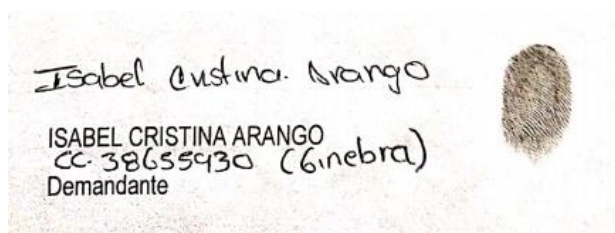 Isabel Cristina. Arango
ISABEL CRISTINA ARANGO
CC. 38655930 (Ginebra)
Demandante